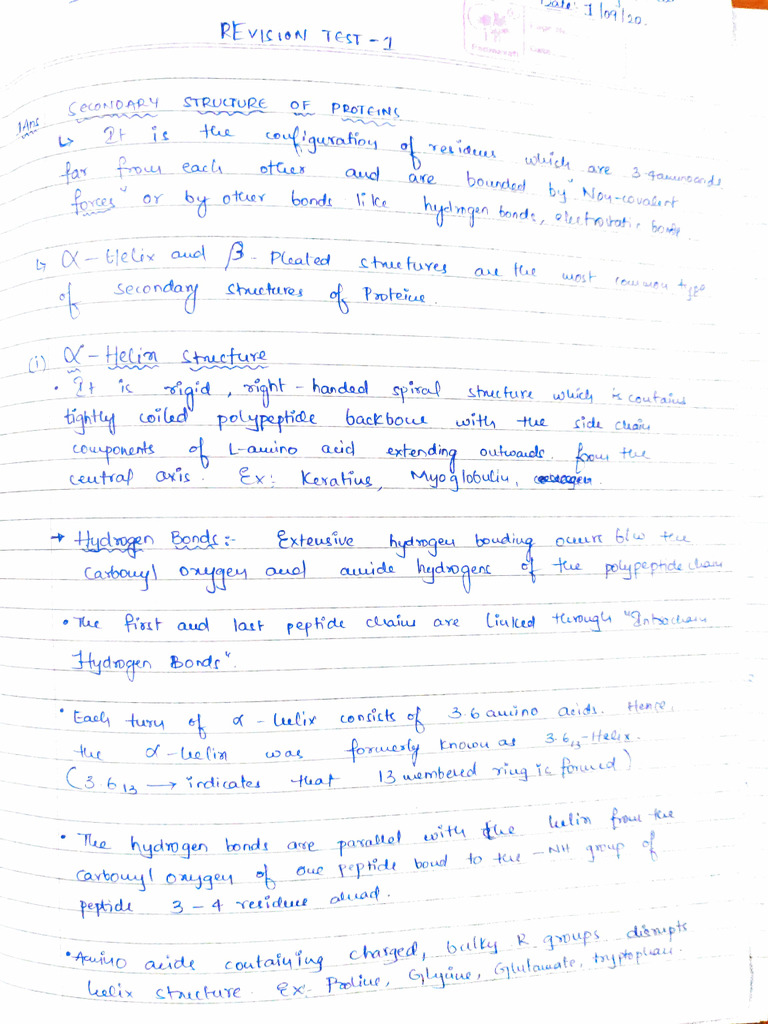 Date: 1/09/20.
REVISION TEST - 1
1Ans SECONDARY STRUCTURE OF PROTEINS
↳ It is the configuration of residues which are 3-4 aminoacids
far from each other and are bounded by "Non-covalent
forces" or by other bonds like hydrogen bonds, electrostatic bonds.
↳ α - Helix and β - Pleated structures are the most common type
of secondary structures of Proteins.
(i) α - Helix Structure
• It is rigid, right-handed spiral structure which is contains
tightly coiled polypeptide backbone with the side chain
components of L-amino acid extending outwards from the
central axis. Ex: Keratins, Myoglobulin,
→ Hydrogen Bonds:- Extensive hydrogen bonding occurs b/w the
carbonyl oxygen and amide hydrogens of the polypeptide chain
• The first and last peptide chains are linked through "Intrachain
Hydrogen Bonds".
• Each turn of α - helix consists of 3.6 amino acids. Hence,
the α-helix was formerly known as 3.6₁₃-Helix.
(3.6₁₃ → indicates that 13 membered ring is formed)
• The hydrogen bonds are parallel with the helix from the
carbonyl oxygen of one peptide bond to the -NH group of
peptide 3-4 residues ahead.
• Amino acids containing charged, bulky R groups disrupts
helix structure. Ex- Proline, Glycine, Glutamate, tryptophan.